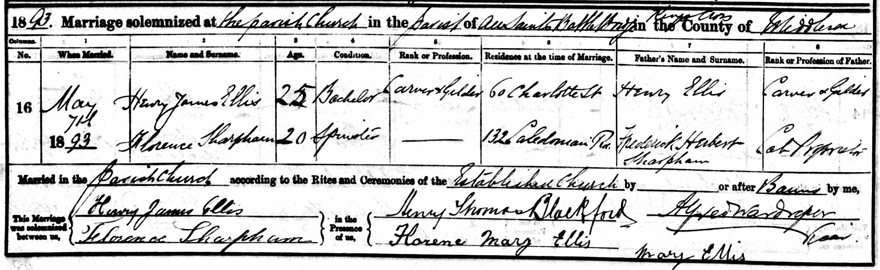 1893. Marriage solemnized at the Parish Church in the Parish of All Saints Battle Bridge Kings Cross in the County of Middlesex
Columns. 1 2 3 4 5 6 7 8
No. When Married. Name and Surname. Age. Condition. Rank or Profession. Residence at the time of Marriage. Father's Name and Surname. Rank or Profession of Father.
16 May 7th 1893 Henry James Ellis 25 Bachelor Carver & Gilder 60 Charlotte St Henry Ellis Carver & Gilder
Florence Sharpham 20 Spinster — 132 Caledonian Rd. Frederick Herbert Sharpham Cab Proprietor
Married in the Parish Church according to the Rites and Ceremonies of the Established Church by or after Banns by me,
This Marriage was solemnized between us, Henry James Ellis
Florence Sharpham
in the Presence of us, Henry Thomas Blackford
Florence Mary Ellis
Mary Ellis
Alfred Wardroper